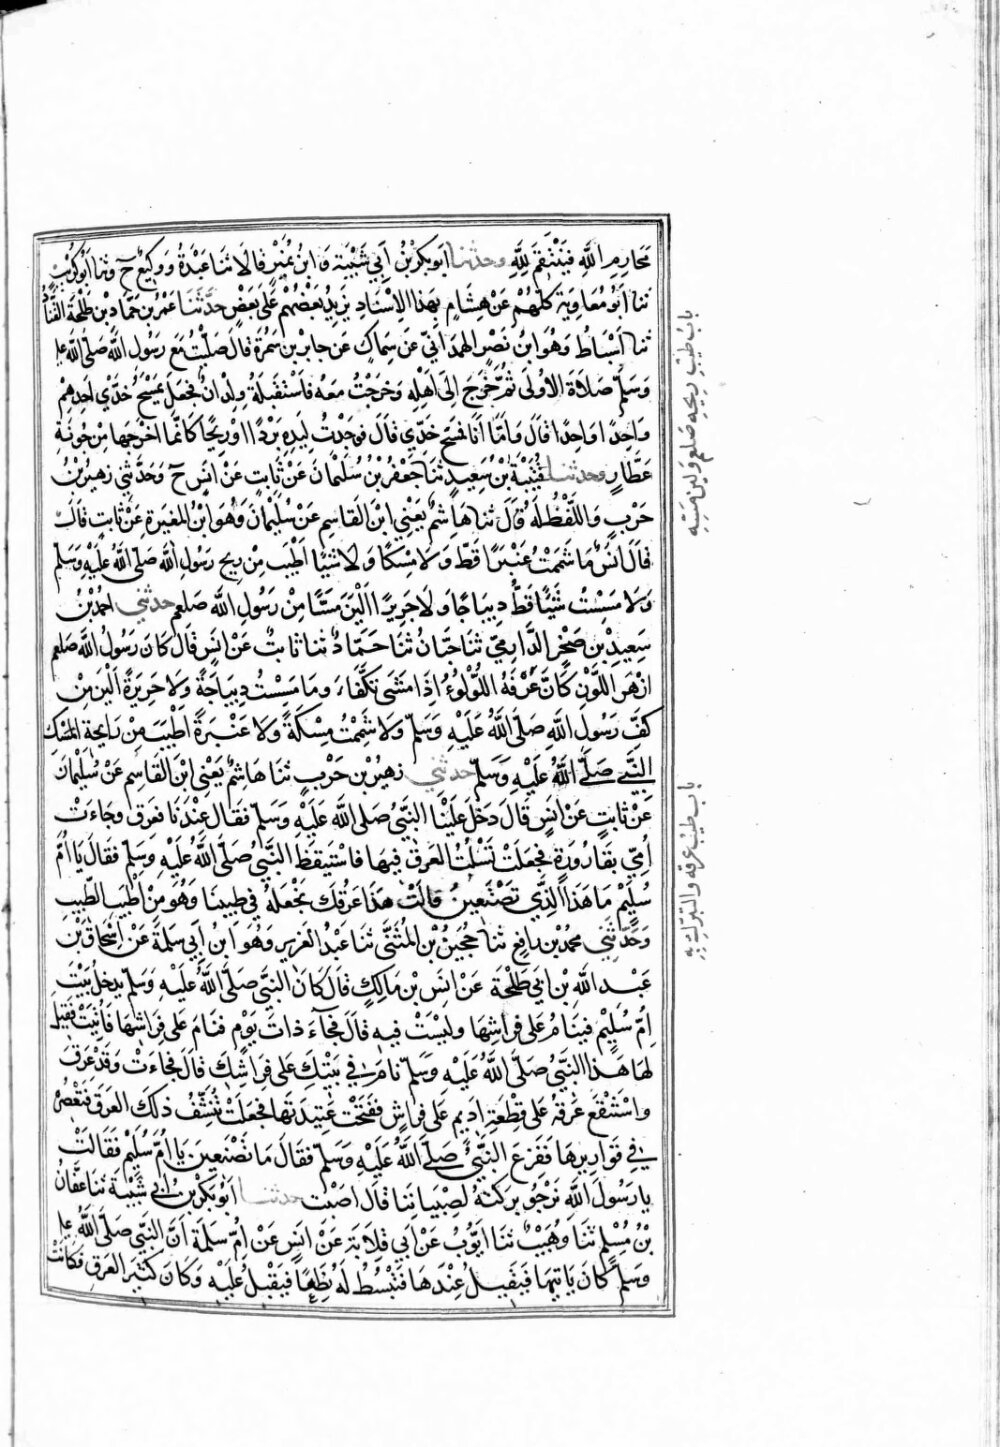 مَحَارِمِ اللَّهِ فَيَنْتَقِمَ لِلَّهِ وحدثنا ابوبكر بْنُ أَبِي شَيْبَةَ وَابْنُ نُمَيْرٍ قَالَا ثنا عَبْدَةُ وَوَكِيعٌ ح وثنا ابُو كُرَيْبٍ
ثنا أَبُو مُعَاوِيَةَ كُلُّهُمْ عَنْ هِشَامٍ بِهَذَا الإِسْنَادِ يَزِيدُ بَعْضُهُمْ عَلَى بَعْضٍ حَدَّثَنَا عَمْرُو بْنُ حَمَّادِ بْنِ طَلْحَةَ القَنَّادُ
ثنا أَسْبَاطٌ وَهُوَ ابْنُ نَصْرٍ الهمدَانِيّ عَنْ سِمَاكٍ عَنْ جابر بن سَمُرَةَ قَالَ صَلَّيْتُ مَعَ رَسُولِ اللَّهِ صَلَّى اللَّهُ عليه
وَسَلَّمَ صَلَاةَ الأُولَى ثُمَّ خَرَجَ إِلَى أَهْلِهِ وَخَرَجْتُ مَعَهُ فَاسْتَقْبَلَهُ وِلْدَانٌ فَجَعَلَ يَمْسَحُ خَدَّيْ أَحَدِهِمْ
وَاحِدًا وَاحِدًا قَالَ وَأَمَّا أَنَا فَمَسَحَ خَدِّي قَالَ فَوَجَدْتُ لِيَدِهِ بَرْدًا اوْ رِيحًا كَأَنَّمَا أَخْرَجَهَا مِنْ جُونَةِ
عَطَّارٍ وحدثنا قُتَيْبَةُ بْنُ سَعِيدٍ ثَنَا جَعْفَرُ بْنُ سُلَيْمَانَ عَنْ ثَابِتٍ عَنْ انَسٍ ح وَحَدَّثَنِي زُهَيْرُ بْنُ
حَرْبٍ وَاللَّفْظُ لَهُ قَالَ ثنا هَاشِمٌ يَعْنِي ابْنَ القَاسِمِ عَنْ سُلَيْمَانَ وَهُوَ ابْنُ المُغِيرَةِ عَنْ ثَابِتٍ قَالَ
قَالَ أَنَسٌ مَا شَمَمْتُ عَنْبَرًا قَطُّ وَلَا مِسْكًا وَلَا شَيْئًا أَطْيَبَ مِنْ رِيحِ رَسُولِ اللَّهِ صَلَّى اللَّهُ عَلَيْهِ وَسَلَّمَ
وَلَا مَسِسْتُ شَيْئًا قَطُّ دِيبَاجًا وَلَا حَرِيرًا أَلْيَنَ مَسًّا مِنْ رَسُولِ اللَّهِ صلعم حدثني احمد بْنُ
سَعِيدِ بْنِ صَخْرٍ الدَّارِمِيُّ ثنا حَبَّانُ ثنا حَمَّادٌ ثنا ثَابِتٌ عَنْ أَنَسٍ قَالَ كَانَ رَسُولُ اللَّهِ صلعم
أَزْهَرَ اللَّوْنِ كَأَنَّ عَرَقَهُ اللُّؤْلُؤُ إِذَا مَشَى تَكَفَّاءَ وَمَا مَسِسْتُ دِيبَاجَةً وَلَا حَرِيرَةً أَلْيَنَ مِنْ
كَفِّ رَسُولِ اللَّهِ صَلَّى اللَّهُ عَلَيْهِ وَسَلَّمَ وَلَا شَمِمْتُ مِسْكَةً وَلَا عَنْبَرَةً أَطْيَبَ مِنْ رَايِحَةِ
النَّبِيِّ صَلَّى اللَّهُ عَلَيْهِ وَسَلَّمَ حدثني زهَيْرُ بْنُ حَرْبٍ ثنا هَاشِمٌ يَعْنِي ابْنَ القَاسِمِ عَنْ سُلَيْمَانَ
عَنْ ثَابِتٍ عَنْ أَنَسٍ قَالَ دَخَلَ عَلَيْنَا النَّبِيُّ صَلَّى اللَّهُ عَلَيْهِ وَسَلَّمَ فَقَالَ عِنْدَنَا فَعَرِقَ وَجَاءَتْ
أُمِّي بِقَارُورَةٍ فَجَعَلَتْ تَسْلُتُ العَرَقَ فِيهَا فَاسْتَيْقَظَ النَّبِيُّ صَلَّى اللَّهُ عَلَيْهِ وَسَلَّمَ فَقَالَ يَا أُمَّ
سُلَيْمٍ مَا هَذَا الَّذِي تَصْنَعِينَ قَالَتْ هَذَا عَرَقُكَ نَجْعَلُهُ فِي طِيبِنَا وَهُوَ مِنْ أَطْيَبِ الطِّيبِ
وَحَدَّثَنِي محمدُ بْنُ رَافِعٍ ثنا حُجَيْنُ بْنُ المُثَنَّى ثنا عَبْدُ العَزِيزِ وَهُوَ ابْنُ أَبِي سَلَمَةَ عَنْ إِسْحَاقَ بْنِ
عَبْدِ اللَّهِ بْنِ أَبِي طَلْحَةَ عَنْ أَنَسِ بْنِ مَالِكٍ قَالَ كَانَ النَّبِيُّ صَلَّى اللَّهُ عَلَيْهِ وَسَلَّمَ يَدْخُلُ بَيْتَ
أُمِّ سُلَيْمٍ فَيَنَامُ عَلَى فِرَاشِهَا وَلَيْسَتْ فِيهِ قَالَ فَجَاءَ ذَاتَ يَوْمٍ فَنَامَ عَلَى فِرَاشِهَا فَأُتِيَتْ فَقِيلَ
لَهَا هَذَا النَّبِيُّ صَلَّى اللَّهُ عَلَيْهِ وَسَلَّمَ نَامَ فِي بَيْتِكِ عَلَى فِرَاشِكِ قَالَ فَجَاءَتْ وَقَدْ عَرِقَ
وَاسْتَنْقَعَ عَرَقُهُ عَلَى قِطْعَةِ أَدِيمٍ عَلَى فِرَاشٍ فَفَتَحَتْ عَتِيدَتَهَا فَجَعَلَتْ تُنَشِّفُ ذَلِكَ العَرَقَ فَتَعْصُرُهُ
فِي قَوَارِيرِهَا فَفَزِعَ النَّبِيُّ صَلَّى اللَّهُ عَلَيْهِ وَسَلَّمَ فَقَالَ مَا تَصْنَعِينَ يَا أُمَّ سُلَيْمٍ فَقَالَتْ
يا رَسُولَ اللَّهِ نَرْجُو بَرَكَتَهُ لِصِبْيَانِنَا قَالَ أَصَبْتِ حدثنا ابُوبَكْرِ بْنُ ابِي شَيْبَةَ ثنا عَفَّانُ
بْنُ مُسْلِمٍ ثنا وُهَيْبٌ ثنا أَيُّوبُ عَنْ أَبِي قِلَابَةَ عَنْ أَنَسٍ عَنْ أُمِّ سَلَمَةَ أَنَّ النَّبِيَّ صَلَّى اللَّهُ عليه
وَسَلَّمَ كَانَ يَاتِيهَا فَيَقِيلُ عِنْدَهَا فَتَبْسُطُ لَهُ نِطْعًا فَيَقِيلُ عَلَيْهِ وَكَانَ كَثِيرَ العَرَقِ فَكَانَتْ
باب طيب ريحه صلعم ولين مسه
باب طيب عرقه والتبرك به